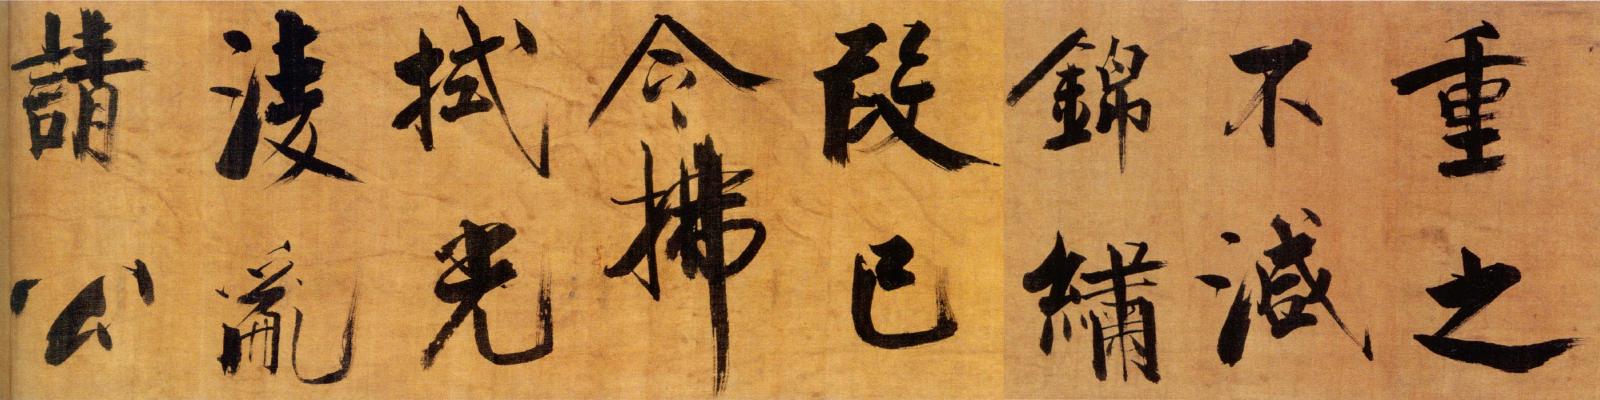 重之
不減
錦繡
段已
令拂
拭光
淩亂
請公